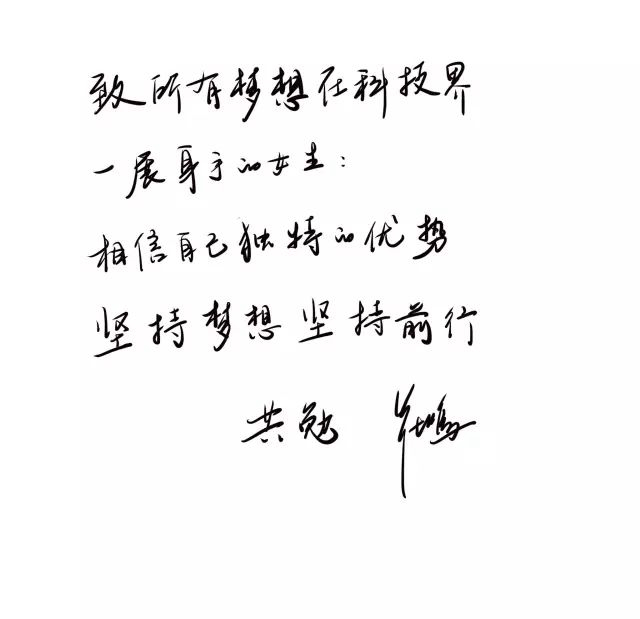 致所有梦想在科技界
一展身手的女生：
相信自己独特的优势
坚持梦想 坚持前行
共勉